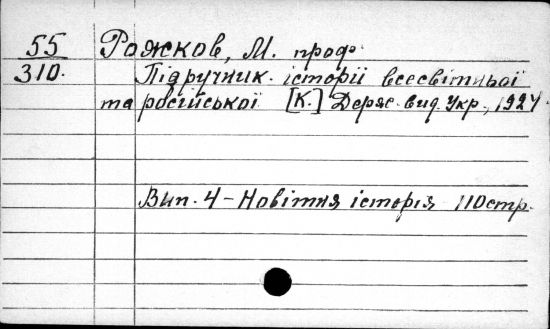 55
310.
Рожков, М. проф.
Підручник історії всесвітньої
та російської [К.] Держ. вид. Укр., 1924.
Вип. 4 – Новітня історія 110 стр.